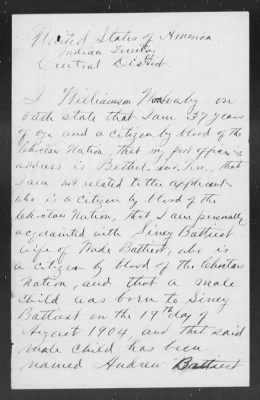 United States of America
Indian Territory
Central District.
I Williamson on
oath state that I am 37 years
of age and a citizen by blood of the
Choctaw Nation, that my post office
address is Bethel, Ind. Ter., that
I am not related to the applicant
who is a citizen by blood of the
Choctaw Nation, that I am personally
acquainted with Siney Battiest
wife of Wade Battiest, who is
a citizen by blood of the Choctaw
Nation, and that a male
child was born to Siney
Battiest on the 19th day of
August 1904, and that said
male child has been
named Andrew Battiest